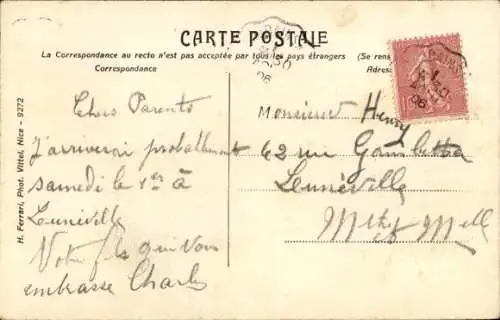 CARTE POSTALE
La Correspondance au recto n'est pas acceptée par tous les pays étrangers (Se ren
Correspondance
Adres
H. Ferrari, Phot. Vittel, Nice - 9272
Chers Parents
J'arriverai probablement
samedi le 1er à
Lunéville
Votre fils qui vous
embrasse Charles
Monsieur Henry
62 rue Gambetta
Lunéville
Mthe & Mell
06